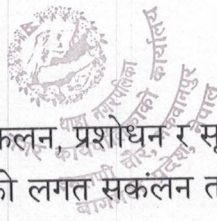 थाहा नगरपालिका
कार्यपालिकाको कार्यालय
मकवानपुर
बागमती प्रदेश, नेपाल
कलन, प्रशोधन र सू
लगत सकंलन त